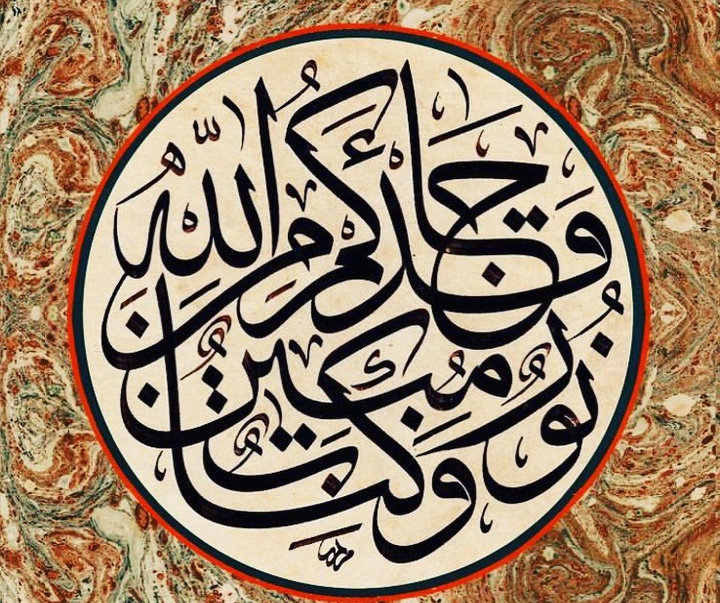 قَدْ جَاءَكُمْ مِنَ اللّٰهِ
نُورٌ وَكِتَابٌ مُبِينٌ